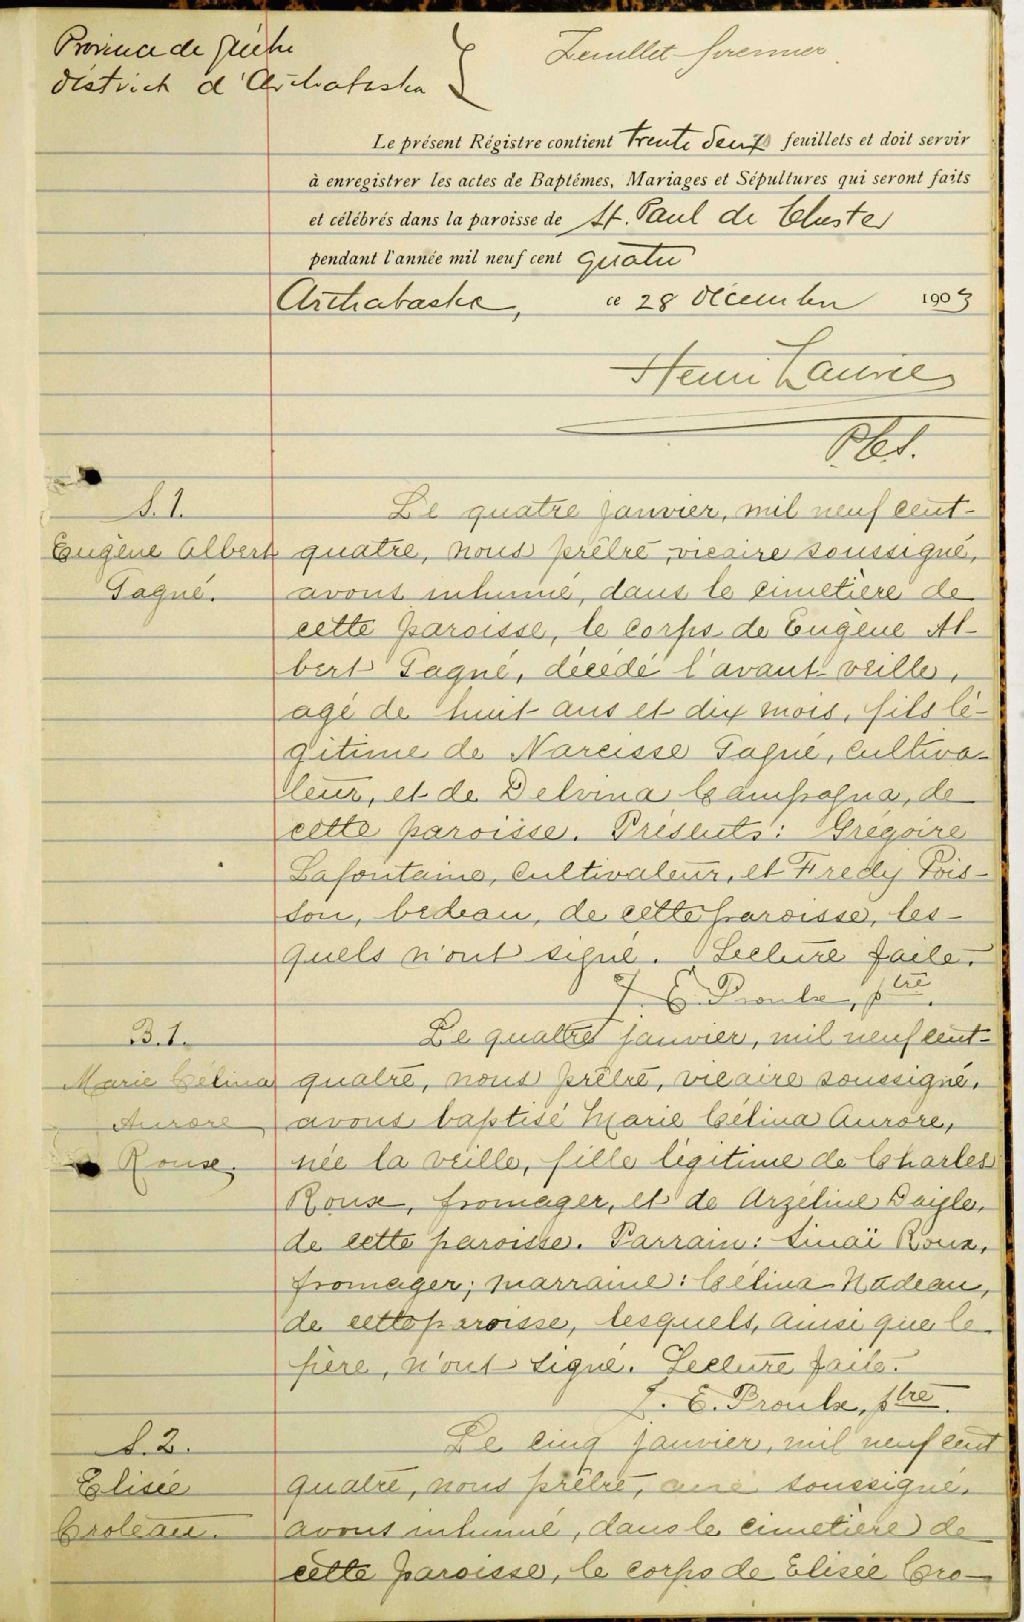 Province de Québec
District d'Arthabaska
Feuillet premier
Le présent Régistre contient trente deux feuillets et doit servir
à enregistrer les actes de Baptêmes, Mariages et Sépultures qui seront faits
et célébrés dans la paroisse de St. Paul de Chester
pendant l'année mil neuf cent quatre
Arthabaska, ce 28 Décembre 1903
Henri Laurier
P.C.S.
S. 1.
Eugène Albert
Gagné.
Le quatre janvier, mil neuf cent-
quatre, nous prêtre, vicaire soussigné,
avons inhumé, dans le cimetière de
cette paroisse, le corps de Eugène Al-
bert Gagné, décédé l'avant-veille,
agé de huit ans et dix mois, fils lé-
gitime de Narcisse Gagné, cultiva-
teur, et de Delvina Campagna, de
cette paroisse. Présents: Grégoire
Lafontaine, cultivateur, et Fredy Pois-
son, bedeau, de cette paroisse, les-
quels n'ont signé. Lecture faite.
J. E. Proulx, ptre.
B. 1.
Marie Célina
Aurore
Roux.
Le quatre janvier, mil neuf cent-
quatre, nous prêtre, vicaire soussigné,
avons baptisé Marie Célina Aurore,
née la veille, fille légitime de Charles
Roux, fromager, et de Arzéline Daigle,
de cette paroisse. Parrain: Sinaï Roux,
fromager; marraine: Célina Nadeau,
de cette paroisse, lesquels, ainsi que le
père, n'ont signé. Lecture faite.
J. E. Proulx, ptre.
S. 2.
Elisée
Croteau.
Le cinq janvier, mil neuf cent
quatre, nous prêtre, curé soussigné,
avons inhumé, dans le cimetière de
cette paroisse, le corps de Elisée Cro-